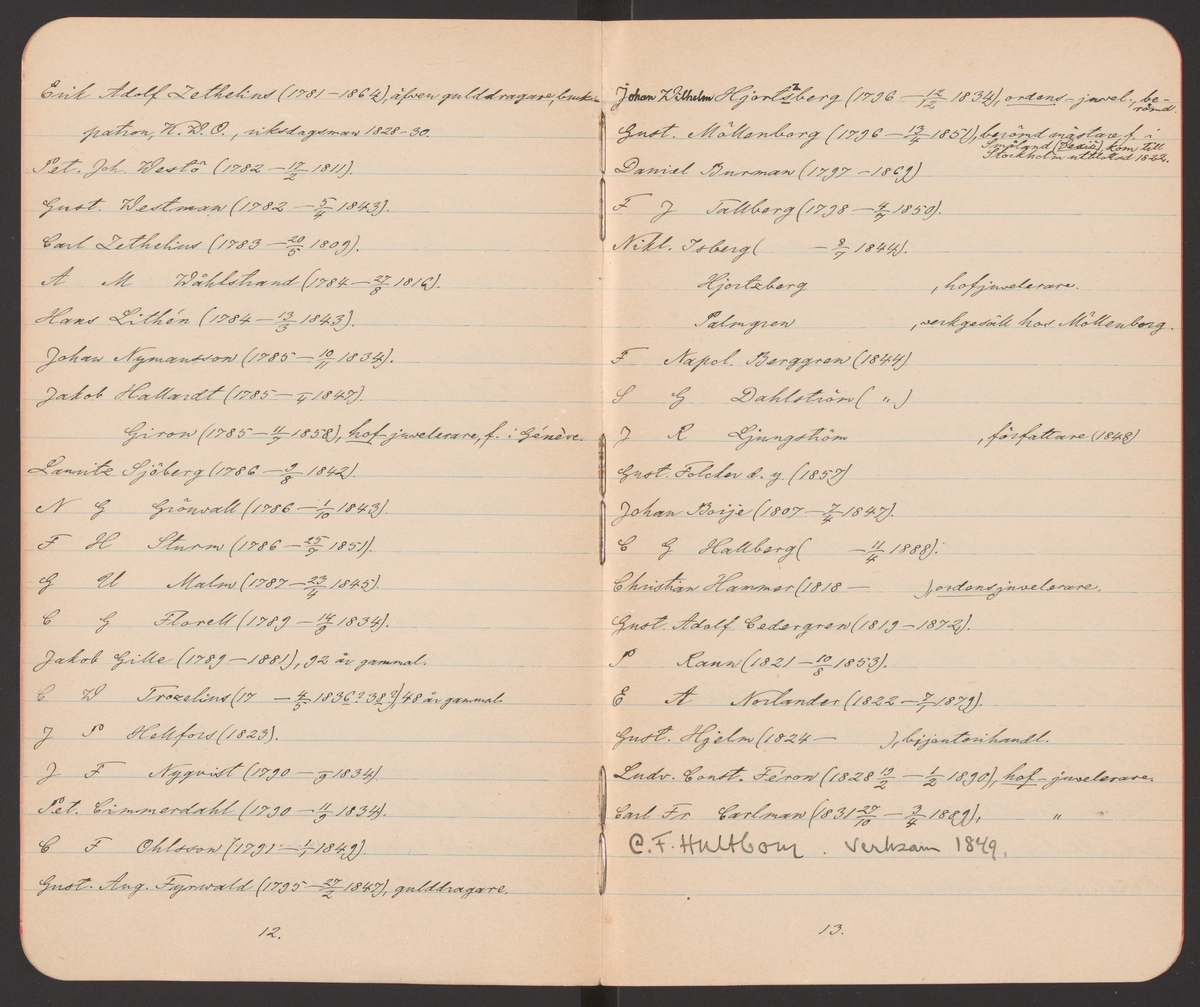 Erik Adolf Zethelius (1781–1864), äfven gulddragare, bruks-
patron, K.W.O., riksdagsman 1828–30.
Pet. Joh. Westö (1782 – 17/2 1811).
Gust. Westman (1782 – 5/4 1843).
Carl Zethelius (1783 – 20/5 1809).
A M Wåhlstrand (1784 – 27/8 1816).
Hans Lithén (1784 – 13/3 1843).
Johan Nymansson (1785 – 10/11 1834).
Jakob Hallardt (1785 – /4 1847).
Giron (1785 – 11/7 1858), hof-juvelerare, f. i Généve.
Lauritz Sjöberg (1786 – 9/8 1842).
N G Grönvall (1786 – 1/10 1843).
F H Sturm (1786 – 25/7 1851).
G U Malm (1787 – 23/4 1845)
C G Florell (1789 – 14/9 1834).
Jakob Gille (1789 – 1881), 92 år gammal.
C W Trozelius (17 – 4/5 1836? 38?) 48 år gammal.
J P Hellfors (1823).
J F Nyqvist (1790 – /9 1834)
Pet. Cimmerdahl (1790 – 11/9 1834).
C F Ohlsson (1791 – 1/1 1849).
Gust. Aug. Fyrwald (1795 – 27/2 1847), gulddragare.
12.
Johan Wilhelm Hjortzberg (1796 – 12/12 1834), ordens-juvel., be-
römd.
Gust. Möllenborg (1796 – 13/4 1851), berömd mästare f. i
Småland (Vexiö), kom till
Stockholm utblottad 1822.
Daniel Burman (1797 – 1869)
F J Tallberg (1798 – 4/7 1850).
Nikl. Isberg ( – 8/7 1844).
Hjortzberg , hofjuvelerare.
Palmgren , verkgesäll hos Möllenborg.
F Napol. Berggren (1844)
S G Dahlström ( " )
J R Ljungström , författare (1848)
Gust. Folcker d. y. (1857)
Johan Boije (1807 – 7/4 1847).
C G Hallberg ( – 11/4 1888).
Christian Hammer (1818 – ), ordensjuvelerare.
Gust. Adolf Cedergren (1819 – 1872).
P Raun (1821 – 10/8 1853).
E A Norlander (1822 – 7/1 1879).
Gust. Hjelm (1824 – ), bijouterihandl.
Ludv. Const. Féron (1828 13/2 – 1/2 1890), hof-juvelerare.
Carl Fr Carlman (1831 27/10 – 3/4 1889), "
C. F. Hultbom . verksam 1849.
13.